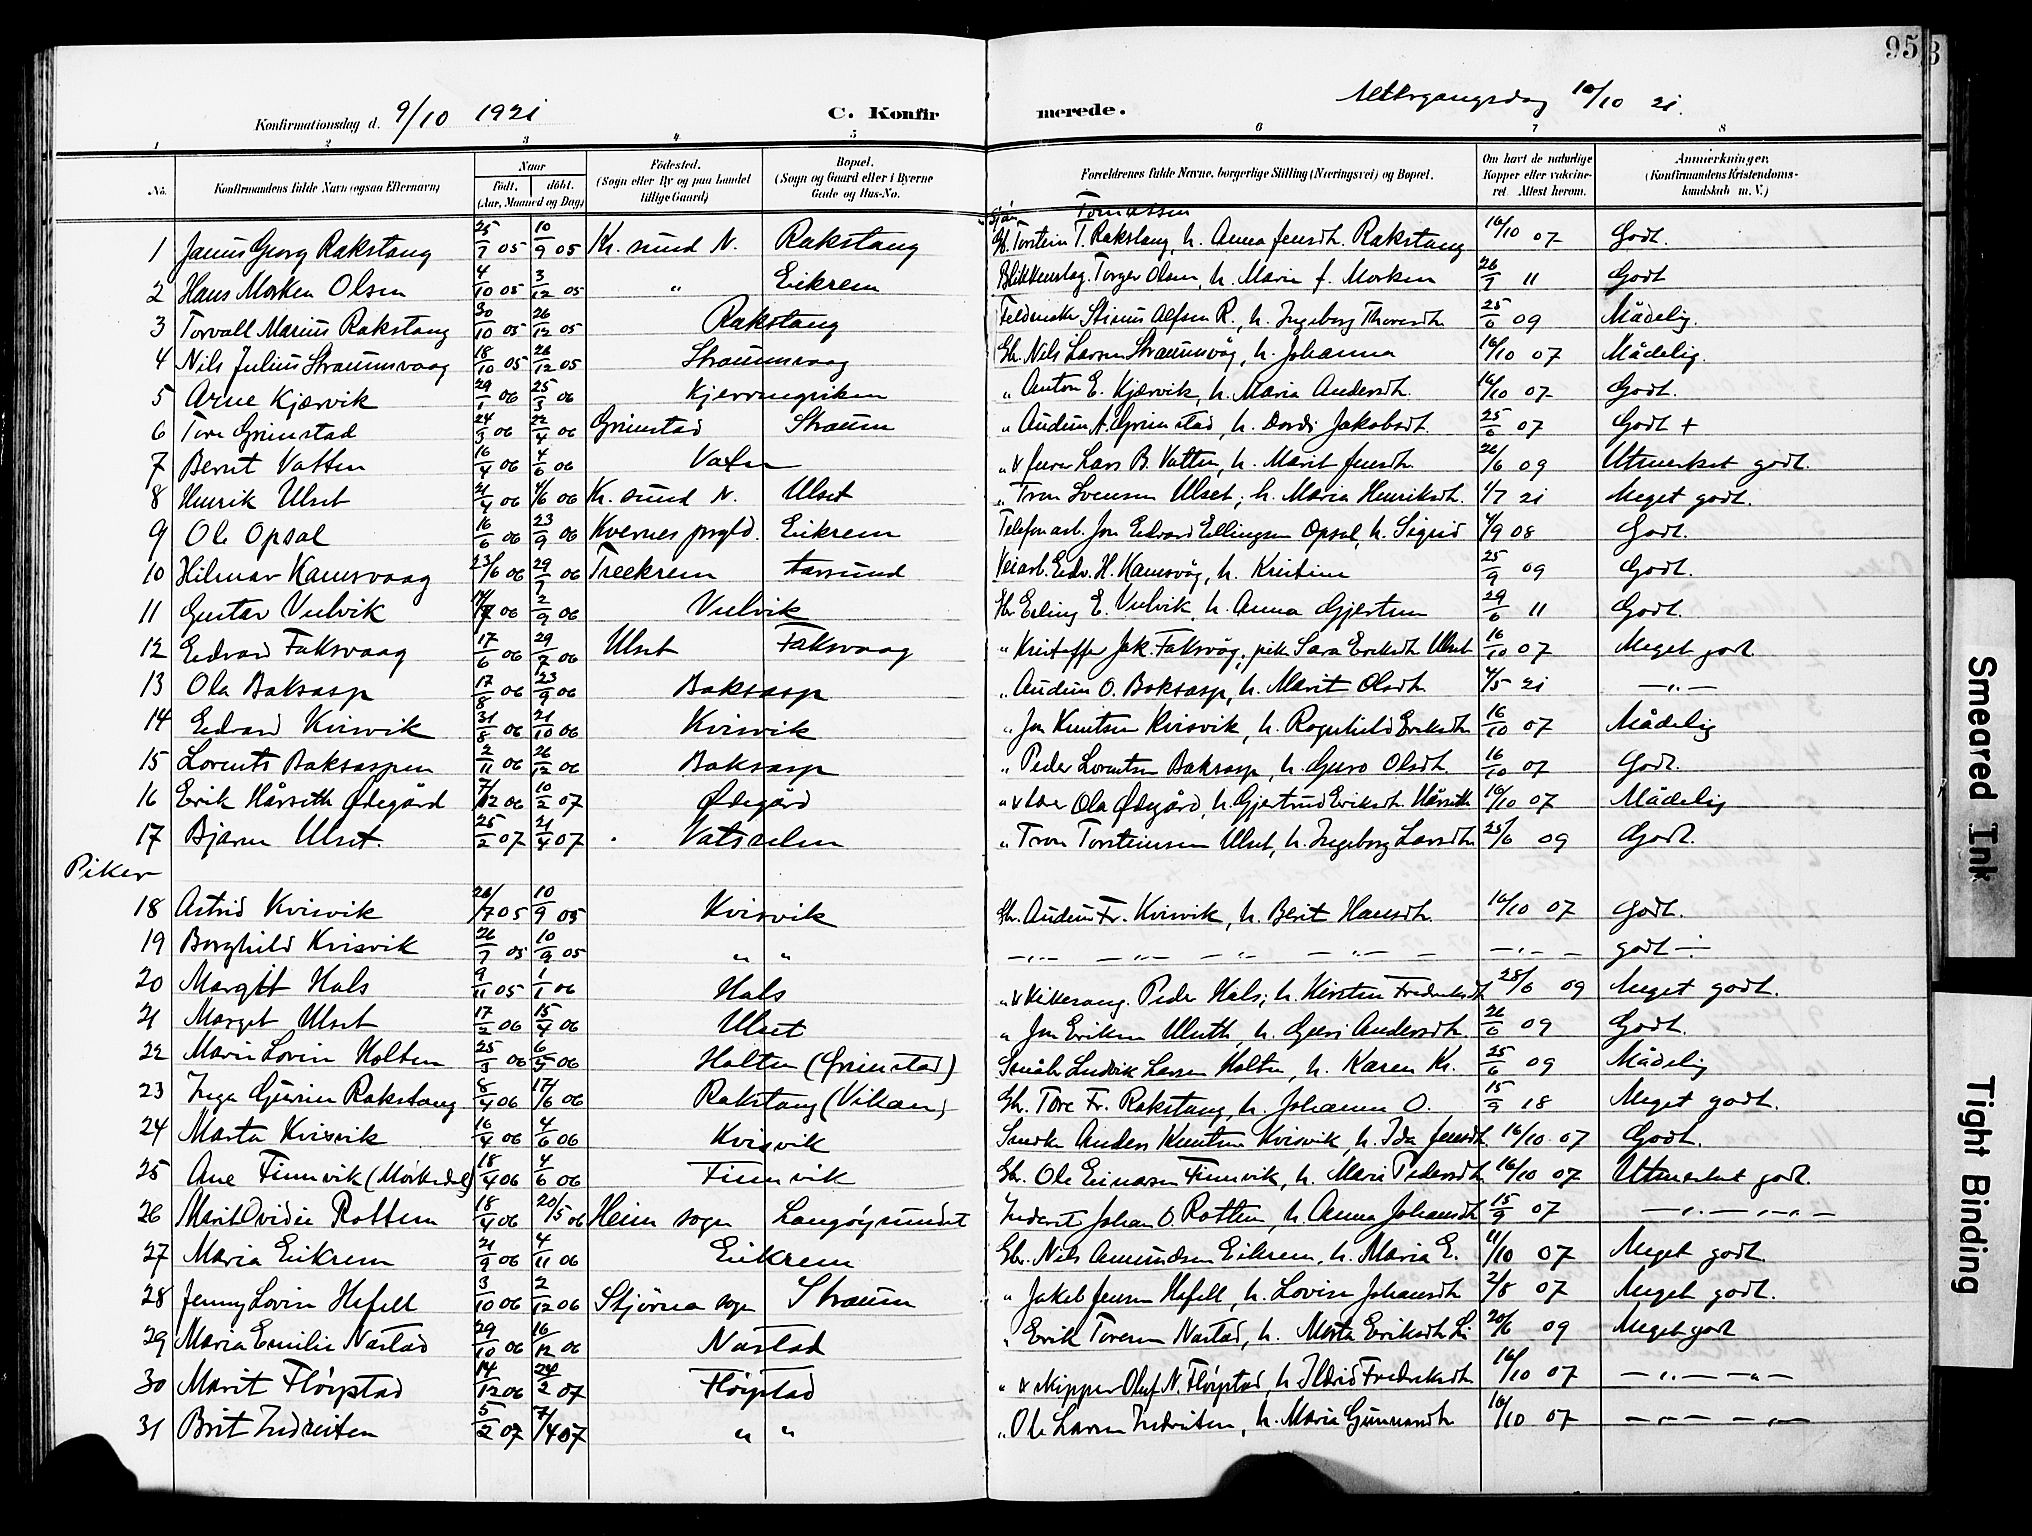 95
Konfirmationsdag d. 9/10 1921 C. Konfirmerede. Altergangsdag 16/10 21.
1 2 3 4 5 6 7 8
No. Konfirmandens fulde Navn (ogsaa Efternavn) Naar født, døbt. (Aar, Maaned og Dag) Fødested. (Sogn eller By og paa Landet tillige Gaard) Bopæl. (Sogn og Gaard eller i Byerne Gade og Hus-No. Forældrenes fulde Navne, borgerlige Stilling (Næringsvei) og Bopæl. Om havt de naturlige Kopper eller vaccineret. Attest herom. Anmerkninger. (Konfirmandens Kristendomskundskab m. V.)
Tomassen
1 Janus Georg Rakstang 25/7 05 10/9 05 Kr. sund N. Rakstang Gb. Torstein T. Rakstang, h. Anna Jensdtr. Rakstang 16/10 07 Godt.
2 Hans Morken Olsen 4/10 05 3/12 05 " Eikrem Blikkenslag. Torger Olsen, h. Marie f. Morken 26/7 11 Godt
3 Torvall Marius Rakstang 30/10 05 26/12 05 Rakstang Stinus Alfsen R., h. Ingeborg Thoresdtr 25/6 09 Mådelig.
4 Nils Julius Straumsvaag 18/10 05 26/12 05 Straumsvaag Gb. Nils Larsen Straumsvåg, h. Johanna 16/10 07 Mådelig.
5 Arne Kjærvik 29/1 06 25/3 06 Kjerringviken " Anton E. Kjærvik, h. Maria Andersdtr. 16/10 07 Godt.
6 Tore Grimstad 24/3 06 22/4 06 Grimstad Straum " Audun A. Grimstad, h. Dordi Jakobsdt. 25/6 07 Godt +
7 Bernt Vatten 16/4 06 4/6 06 Vaten " & Lars B. Vatten, h. Marit Jensdtr. 26/6 09 Utmerket godt.
8 Henrik Ulset 21/4 06 4/6 06 Kr. sund N. Ulset " Tron Svensen Ulset; h. Maria Henriksdtr. 1/7 21 Meget godt.
9 Ole Opsal 16/6 06 23/9 06 Kvernes prgld. Eikrem Telefonarb. Jon Edvard Ellingsen Opsal, h. Sigrid 4/9 08 Godt.
10 Hilmar Kamsvaag 23/6 06 29/7 06 Treekrem Aarsund Veiarb. Edv. H. Kamsvåg, h. Kristine 25/9 09 Godt.
11 Gustav Vulvik 06 2/9 06 Vulvik Gb. Erling E. Vulvik, h. Anna Gjertsen 29/6 11 Godt.
12 Edvard Faksvaag 17/6 06 29/7 06 Ulset Faksvaag " Kristoffer Jak. Faksvåg; pike Sara Eriksdtr Ulset 16/10 07 Meget godt.
13 Ola Boksasp 17/8 06 23/9 06 Boksasp " Audun O. Boksasp, h. Marit Olsdtr. 4/5 21 — " —
14 Edvard Kvisvik 31/8 06 21/10 06 Kvisvik " Jon Knutsen Kvisvik, h. Ragnhild Eriksdtr 16/10 07 Mådelig
15 Lorents Boksaspen 2/11 06 26/12 06 Boksasp " Peder Lorentsen Boksasp, h. Guro Olsdt. 16/10 07 Godt.
16 Erik Hårseth Ødegård 7/12 06 10/2 07 Ødegård " Ola Ødegård, h. Gjertrud Eriksdtr Hårseth 16/10 07 Mådelig
17 Bjarne Ulset. 25/2 07 21/4 07 Vatsælen " Tron Torsteinsen Ulset, h. Ingeborg Larsdtr 25/6 09 Godt.
Piker
18 Astrid Kvisvik 26/7 05 10/9 05 Kvisvik Gb. Audun Fr. Kvisvik, h. Berit Hansdtr. 16/10 07 Godt.
19 Borghild Kvisvik 26/7 05 10/9 05 " " — " — — " — — " — — " — — " — godt ÷
20 Margit Hals 9/11 05 1/1 06 Hals " & Kirkesang. Peder Hals; h. Kirsten Fredriksdt 28/6 09 Meget godt.
21 Marget Ulset 17/2 06 15/4 06 Ulset " Jon Eriksen Ulseth, h. Guri Andersdtr. 26/6 09 Godt.
22 Marie Lovise Holten 25/3 06 6/5 06 Holten (Grimstad) Småbr. Ludvik Larsen Holten, h. Karen Kr. 25/6 09 Mådelig
23 Inga Gurine Rakstang 8/4 06 17/6 06 Rakstang (Vikan) Gb. Tore Fr. Rakstang, h. Johanna O. 15/9 18 Meget godt.
24 Marta Kvisvik 16/4 06 4/6 06 Kvisvik Smed Anders Knutsen Kvisvik, h. Ida Jensdt. 16/10 07 Godt.
25 Ane Finnvik (Mørkedal) 18/4 06 4/6 06 Finnvik Gb. Ole Einarsen Finnvik, h. Marie Pedersdtr 16/10 07 Utmerket godt.
26 Marit Ovidie Rottem 18/4 06 20/5 06 Heim sogn Langøysundet Inderst Johan O. Rottem, h. Anna Johansdtr 15/9 07 — " — " —
27 Maria Eikrem 21/9 06 4/11 06 Eikrem Gb. Nils Amundsen Eikrem, h. Maria E. 11/10 07 Meget godt
28 Jenny Lovise Hefell 3/10 06 2/12 06 Stjørna sogn Straum " Jakob Jensen Hefell, h. Lovise Johansdtr 2/8 07 Meget godt.
29 Maria Emilie Nastad 29/10 06 16/12 06 Nastad " Erik Toresen Nastad, h. Marta Eriksdtr Li 20/6 09 Meget godt
30 Marit Fløystad 14/12 06 24/2 07 Fløystad " & skipper Oluf N. Fløystad, h. Ildrid Fredriksdtr 16/10 07 — " — " —
31 Brit Indreiten 5/2 07 7/4 07 " " " Ole Larsen Indreiten, h. Maria Gunnarsdtr 16/10 07 — " — " —
Smeared Ink
Tight Binding